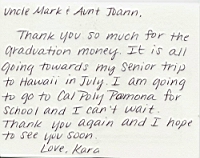 Uncle Mark & Aunt Joann,
Thank you so much for the
graduation money. It is all
going towards my senior trip
to Hawaii in July. I am going
to go to Cal Poly Pomona for
school and I can't wait.
Thank you again and I hope
to see you soon.
Love, Kara